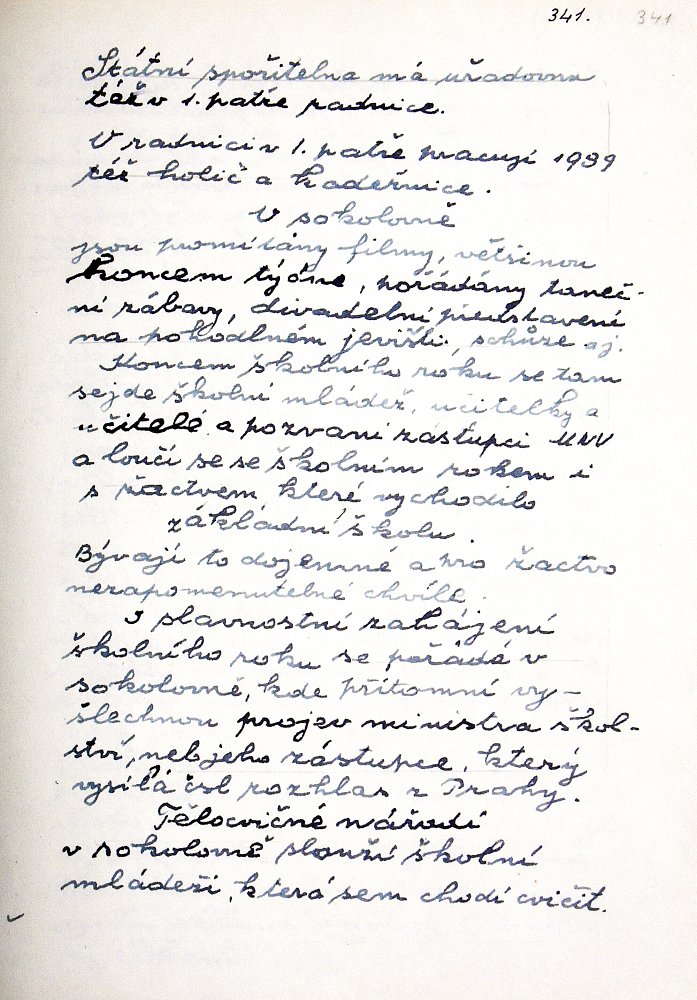 341. 341
Státní spořitelna má uřadovnu
též v 1. patře radnice.
V radnici v 1. patře pracují 1939
též holič a kadeřnice.
V sokolovně
jsou promítány filmy, většinou
koncem týdne, pořádány taneč-
ní zábavy, divadelní představení
na pohodlném jevišti, schůze aj.
Koncem školního roku se tam
sejde školní mládež, učitelky a
učitelé a pozvaní zástupci MNV
a loučí se se školním rokem i
s žactvem, které vychodilo
základní školu.
Bývají to dojemné a pro žactvo
nezapomenutelné chvíle.
I slavnostní zahájení
školního roku se pořádá v
sokolovně, kde přítomní vy-
šlechnou projev ministra škol-
ství, neb jeho zástupce, který
vysílá čsl rozhlas z Prahy.
Tělocvičné nářadí
v sokolovně slouží školní
mládeži, která sem chodí cvičit.